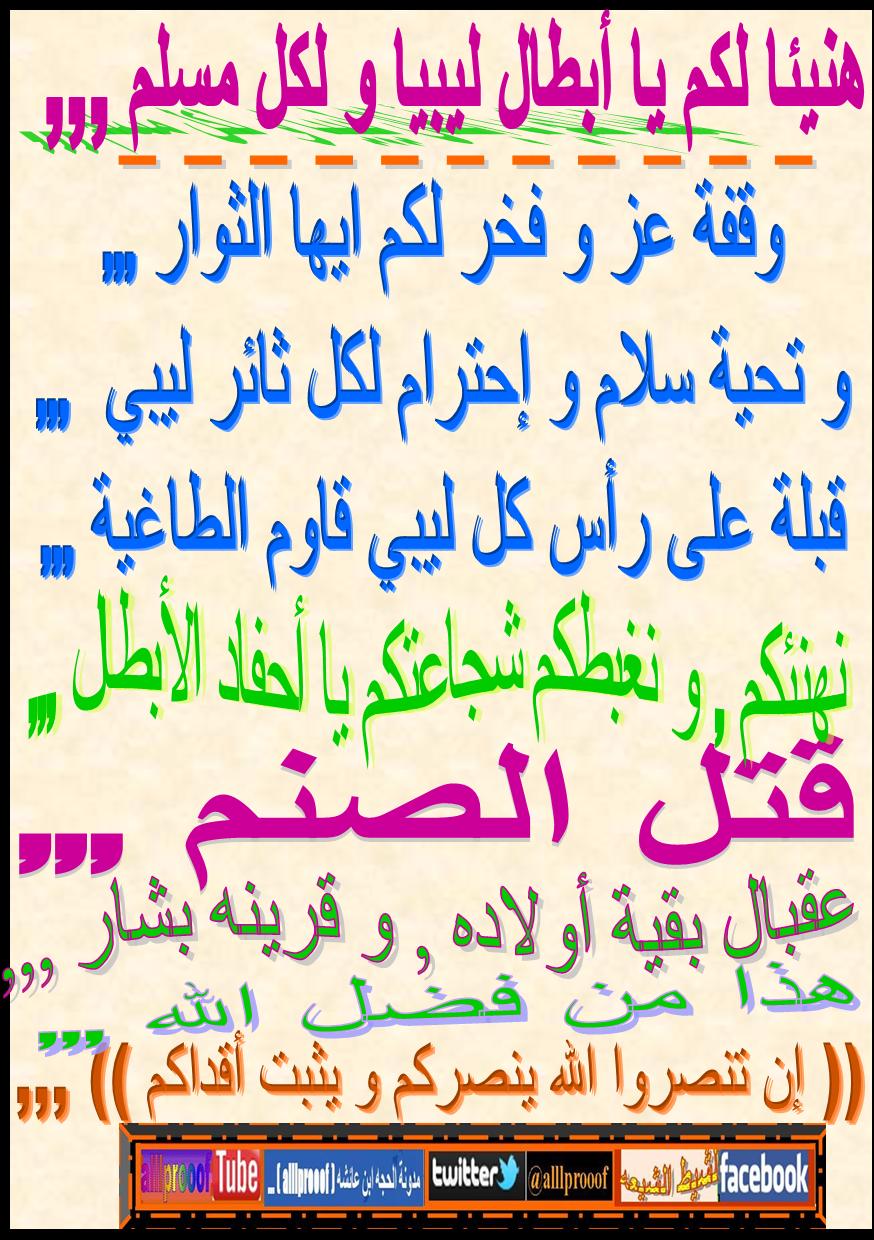 هنيئا لكم يا أبطال ليبيا و لكل مسلم ,,,
وقفة عز و فخر لكم ايها الثوار ,,,
و تحية سلام و إحترام لكل ثائر ليبي ,,,
قبلة على رأس كل ليبي قاوم الطاغية ,,,
نهنئكم , و نغبطكم شجاعتكم يا أحفاد الأبطل ,,,
قتل الصنم ,,,
عقبال بقية أولاده , و قرينه بشار ,,,
هذا من فضل الله ,,,
(( إن تنصروا الله ينصركم و يثبت أقداكم )) ,,,
alllprooof Tube مدونة الحجه ابن عائشه ( alllprooof ) ... twitter @alllprooof facebook